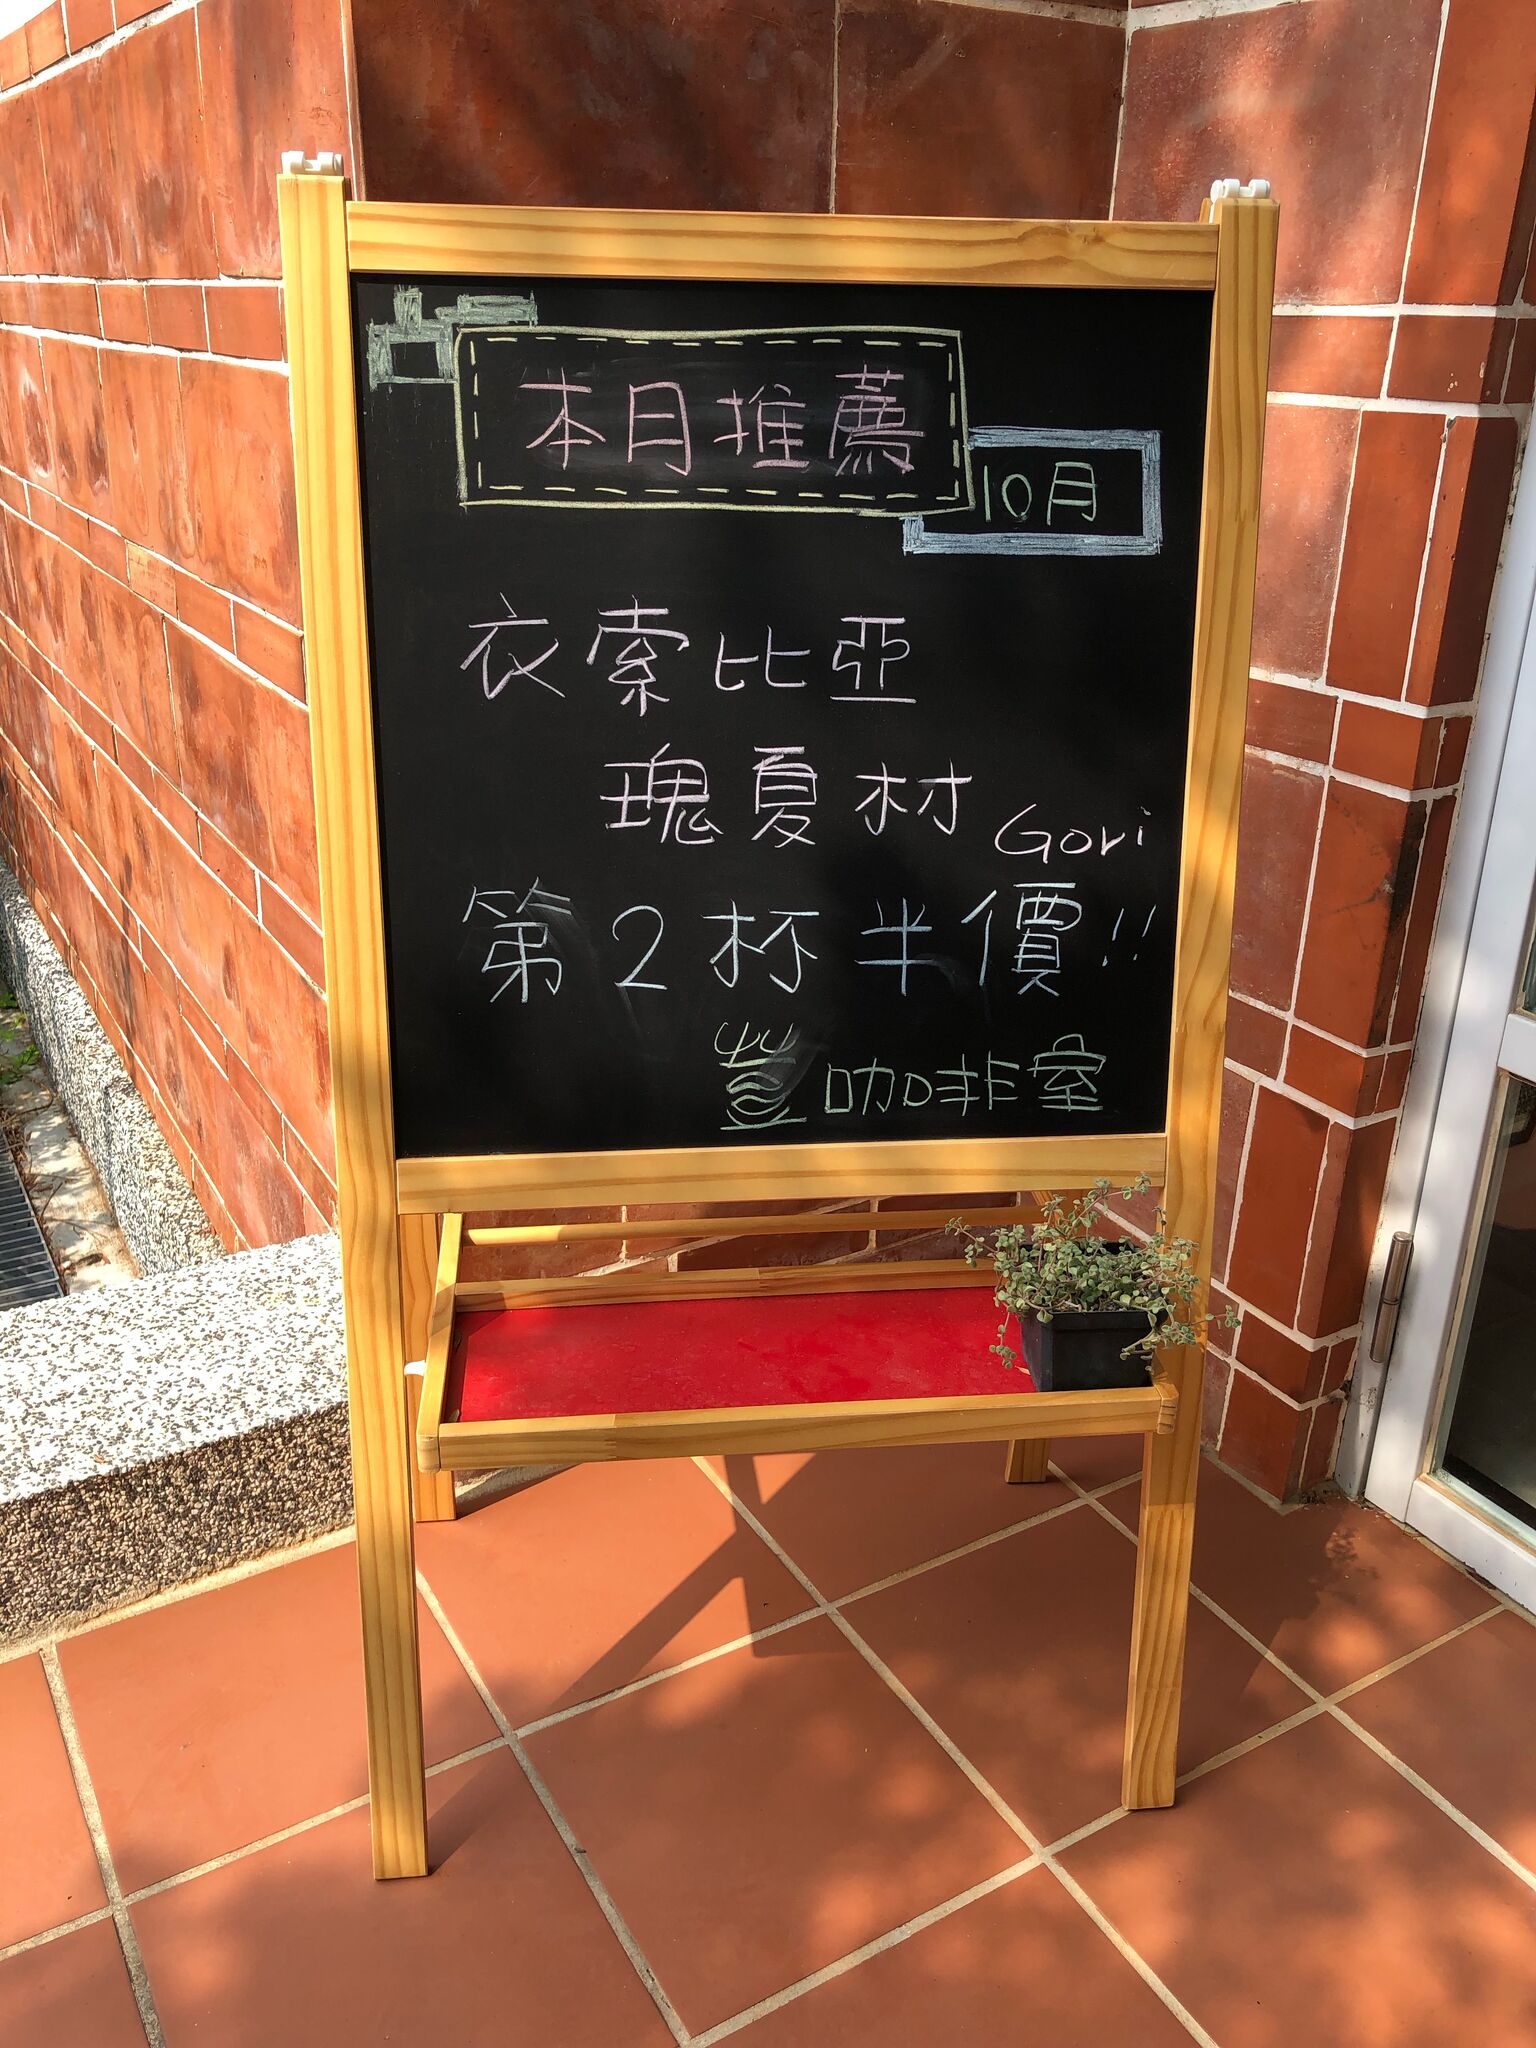 本月推薦
10月
衣索比亞
瑰夏村 Gori
第2杯半價!!
咖啡室